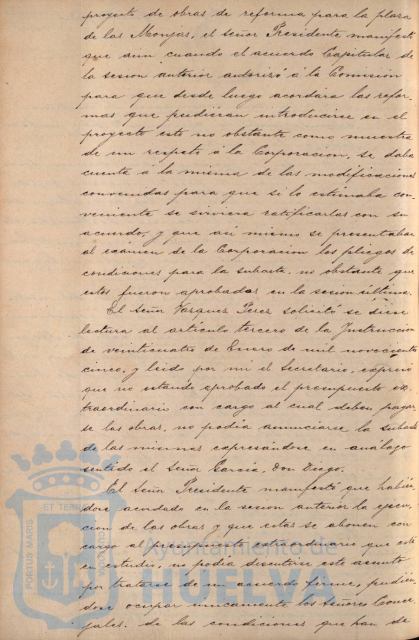 proyecto de obras de reforma para la plaza
de las Monjas, el señor Presidente manifestó
que aun cuando el acuerdo Capitular de
la sesion anterior autorizó á la Comision
para que desde luego acordara las refor-
mas que pudieran introducirse en el
proyecto este no obstante como muestra
de un respeto á la Corporacion, se daba
cuenta á la misma de las modificaciones
convenidas para que si lo estimaba con-
veniente se sirviera ratificarlas con su
acuerdo, y que asi mismo se presentaban
al exámen de la Corporacion los pliegos de
condiciones para la subasta, no obstante que
estos fueron aprobados en la sesion última.
El Señor Vazquez Perez solicitó se diese
lectura al articulo tercero de la Instruccion
de veinticuatro de Enero de mil novecientos
cinco, y leido por mi el Secretario, expresó
que no estando aprobado el presupuesto ex-
traordinario con cargo al cual deben pagar-
se las obras, no podia anunciarse la subasta
de las mismas expresándose en análogo
sentido el Señor Garcia, Don Diego.
El Señor Presidente manifestó que habién-
dose acordado en la sesion anterior la ejecu-
cion de las obras y que estas se abonen con
cargo al presupuesto extraordinario que está
en estudio, no podia discutirse este asunto
por tratarse de un acuerdo firme, pudién-
dose ocupar unicamente los Señores Conce-
jales de las condiciones que han de
PORTUS MARIS
ET TERR
Ayuntamiento de
HUELVA